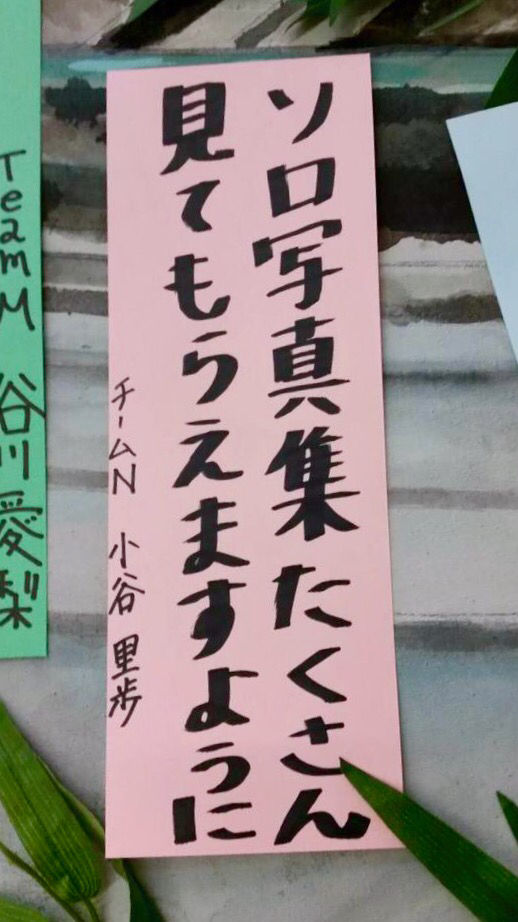 ソロ写真集たくさん
見てもらえますように
チームN 小谷里歩
TeamM 谷川愛梨